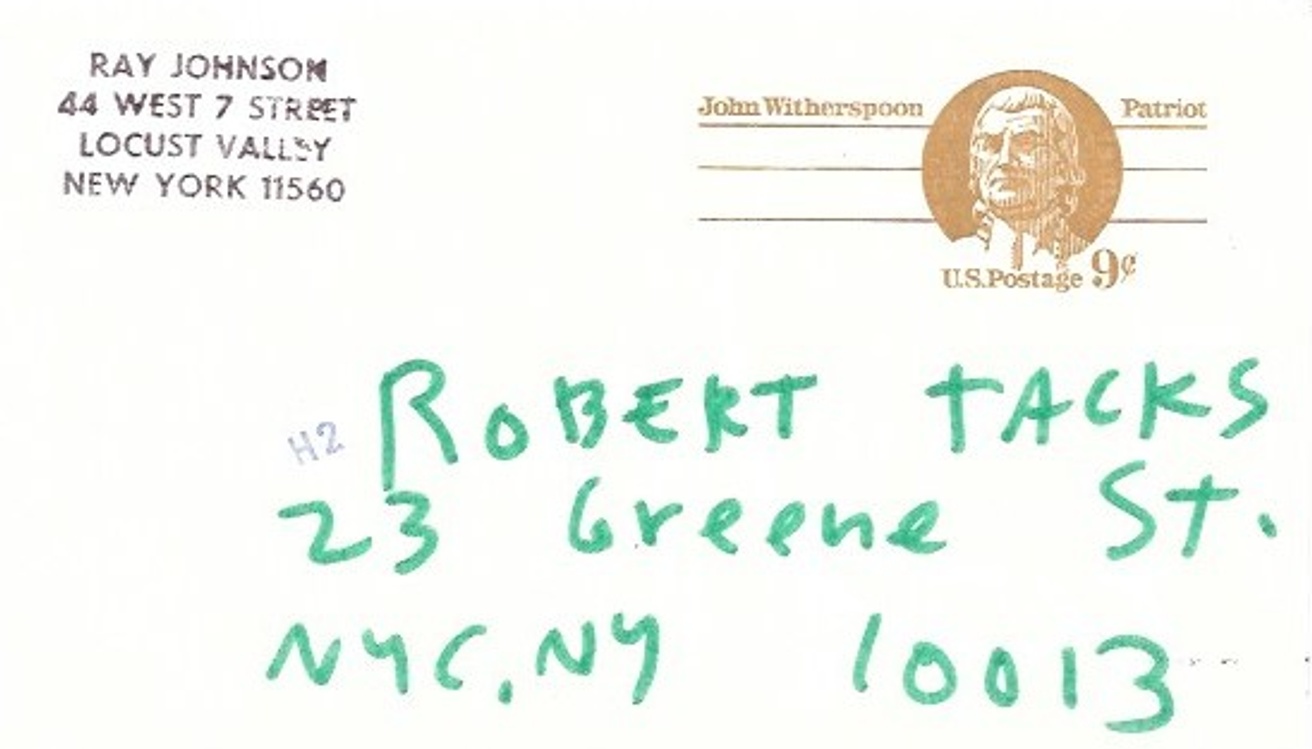 RAY JOHNSON
44 WEST 7 STREET
LOCUST VALLEY
NEW YORK 11560
John Witherspoon Patriot
U.S.Postage 9¢
H2
ROBERT TACKS
23 Greene St.
NYC, NY 10013